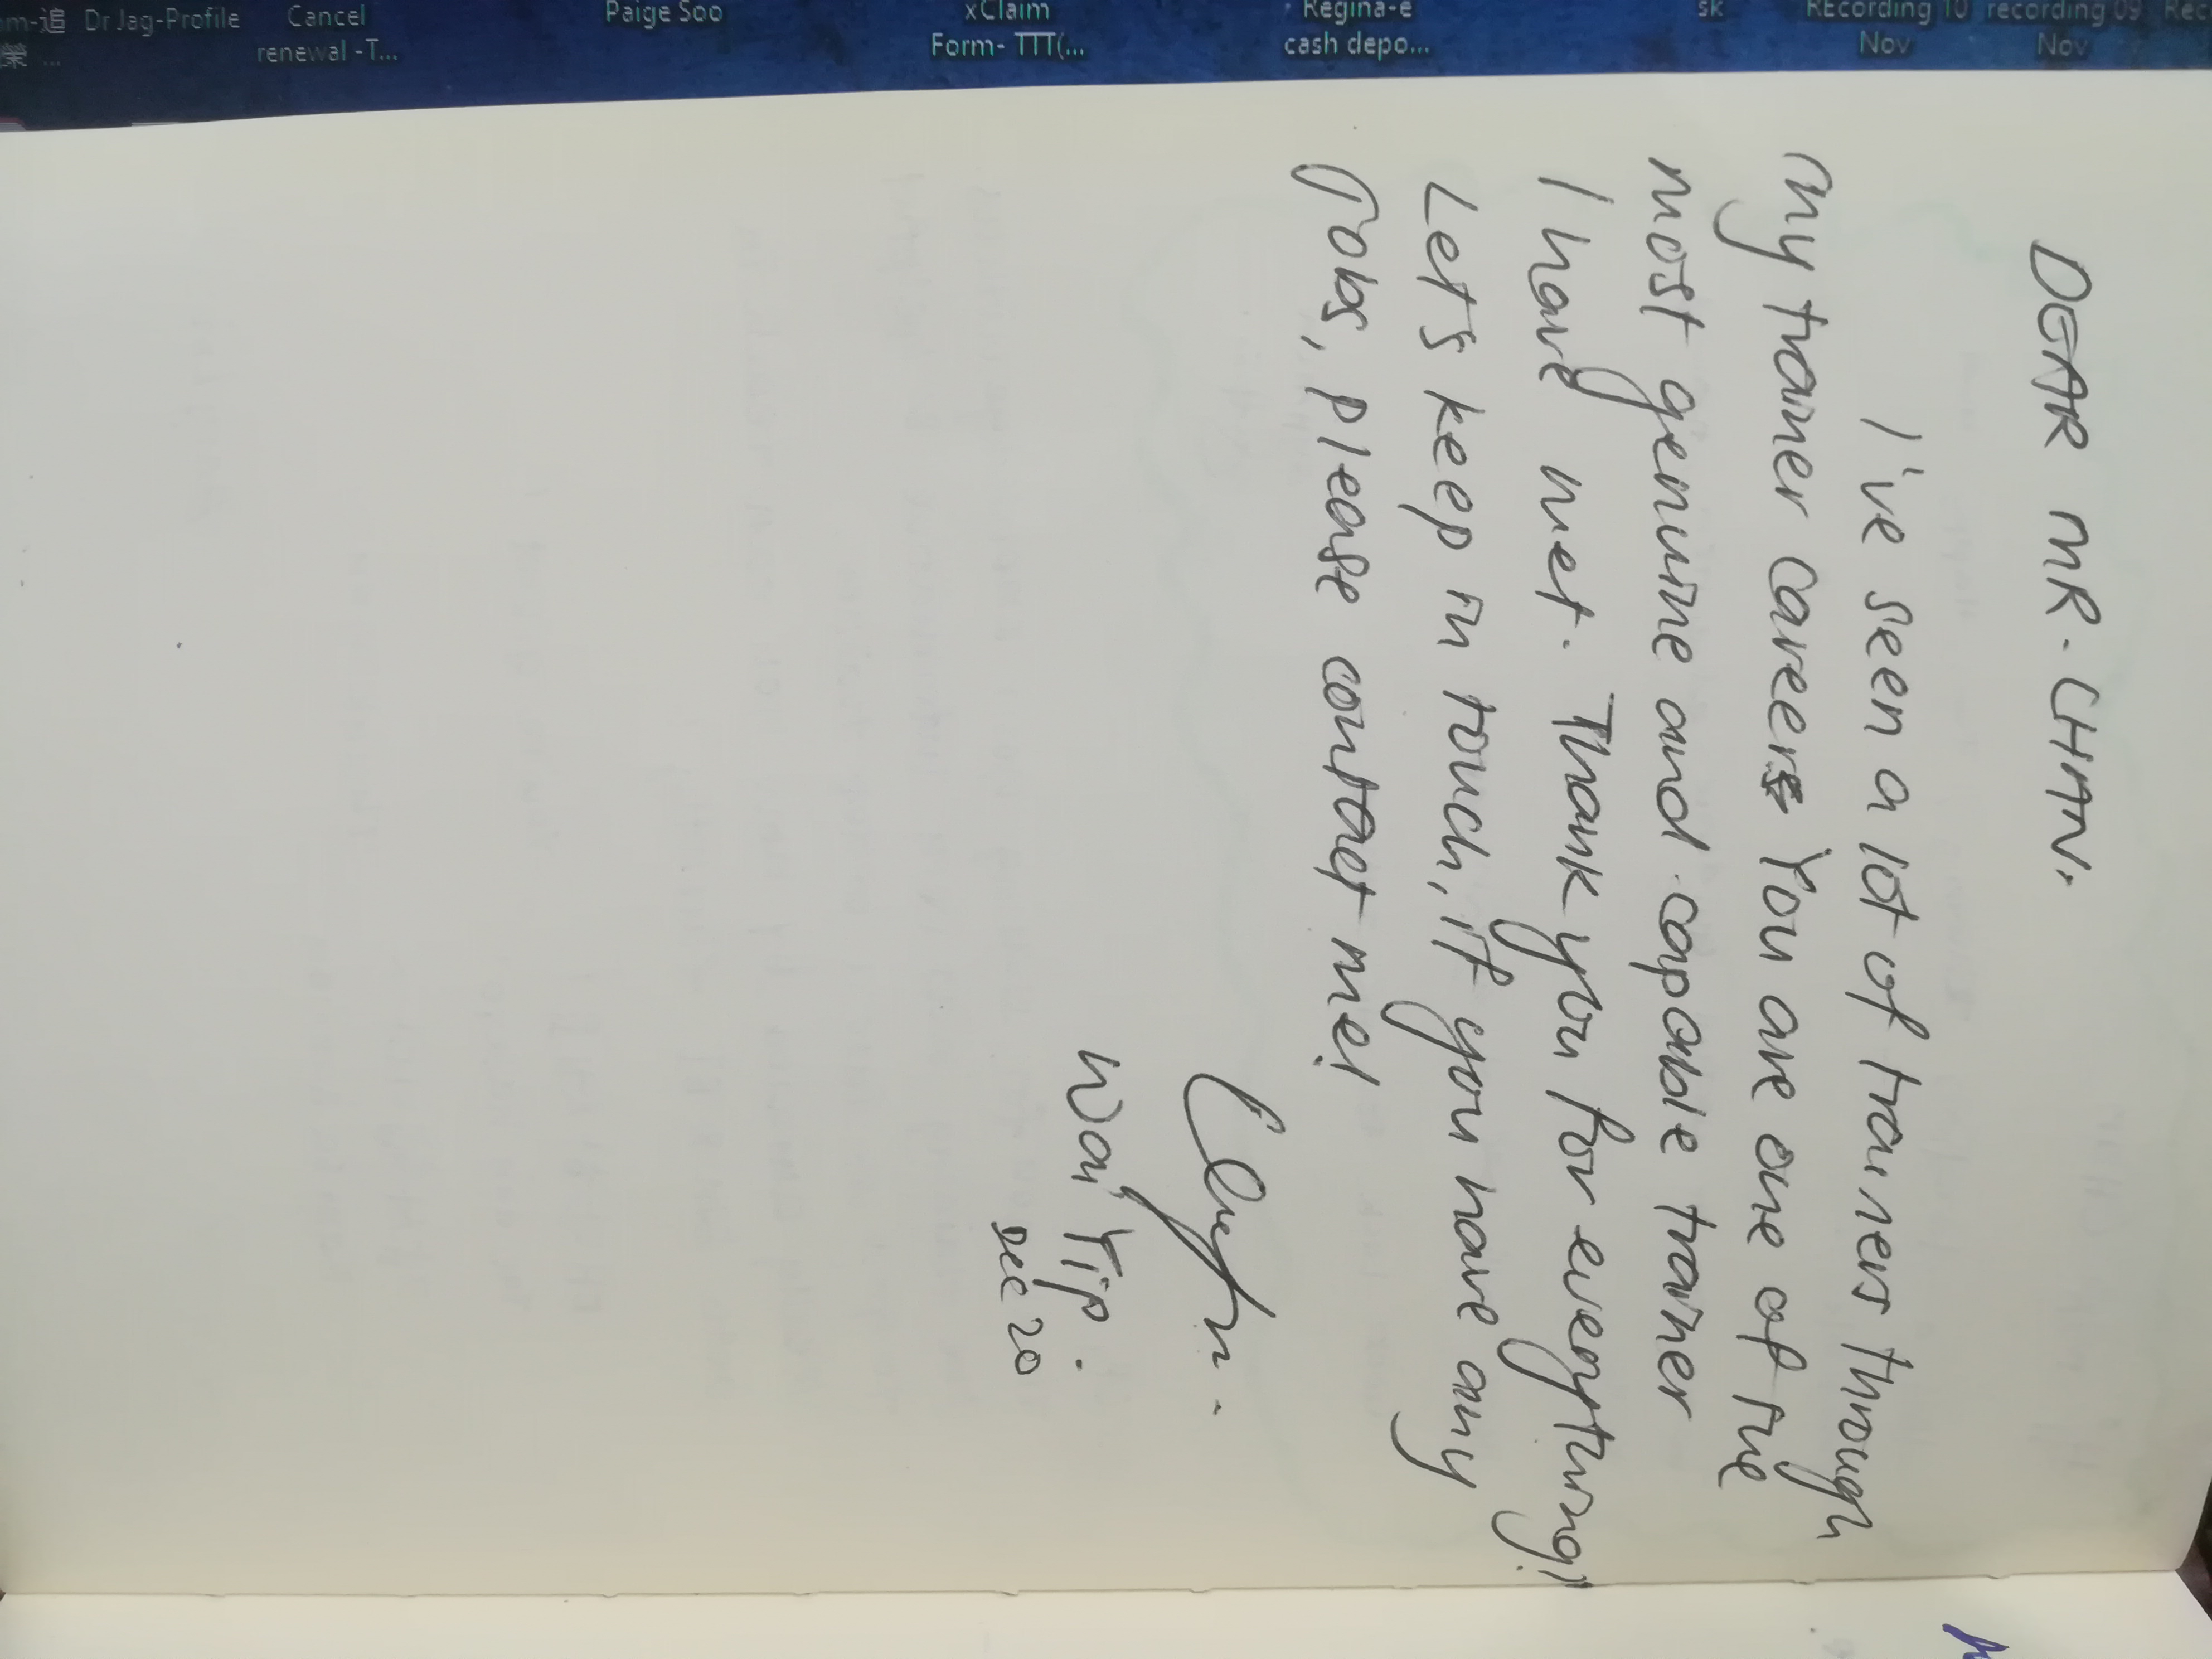 Dr Jag-Profile
Cancel
renewal -T...
Paige Soo
xClaim
Form- TTT(...
Regina-e
cash depo...
sk
REcording 10
Nov
recording 09
Nov
DEAR MR. CHAN,
I've seen a lot of trainers through
my trainer career. You are one of the
most genuine and capable trainer
I have met. Thank you for everything!
Let's keep in touch, if you have any
jobs, please contact me!
Wai Yip.
Dec 20